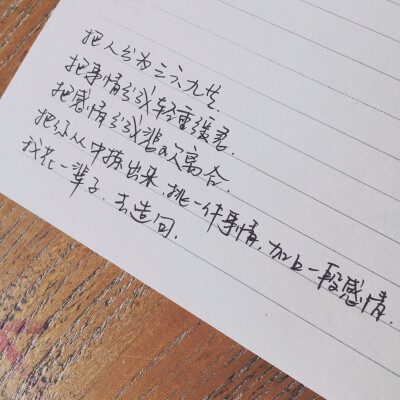 把人分为三六九等.
把事情分成轻重缓急.
把感情分成悲欢离合.
把你从中拣出来,挑一件事情,加上一段感情.
我花一辈子,去造句.